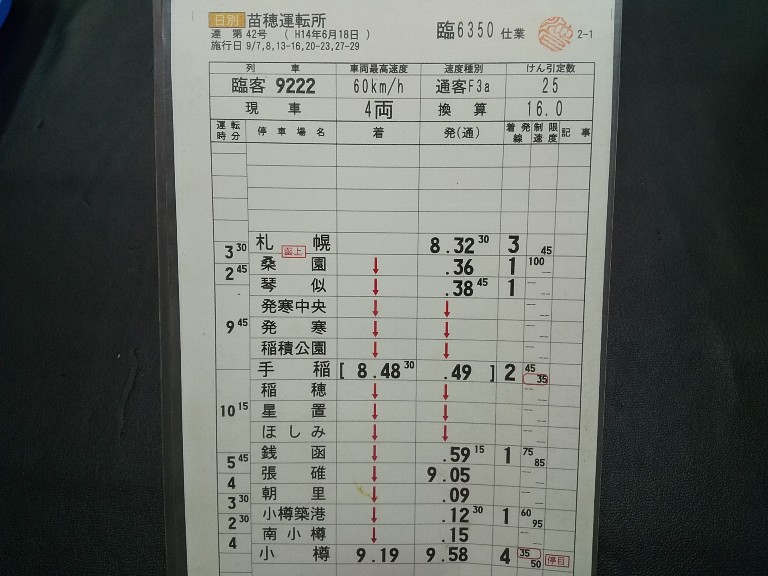 日別 苗穂運転所
達 第42号 ( H14年6月18日 )
施行日 9/7,8,13-16,20-23,27-29
臨6350 仕業 2-1
列 車 車両最高速度 速度種別 けん引定数
臨客 9222 60km/h 通客F3a 25
現 車 4両 換 算 16.0
運転時分 停車場名 着 発(通) 着発線 制限速度 記事
札 幌 函上 8.32 30 3 45
3 30
桑 園 ↓ .36 1 100 —
2 45
琴 似 ↓ .38 45 1 — —
発寒中央 ↓ ↓ — —
9 45 発 寒 ↓ ↓ — —
稲積公園 ↓ ↓ — —
手 稲 [ 8.48 30 .49 ] 2 45 35
稲 穂 ↓ ↓ — —
10 15 星 置 ↓ ↓ — —
ほしみ ↓ ↓ — —
銭 函 ↓ .59 15 1 75 85
5 45
張 碓 ↓ 9.05 — —
4
朝 里 ↓ .09 — —
3 30
小樽築港 ↓ .12 30 1 60 95
2 30
南小樽 ↓ .15 — —
4
小 樽 9.19 9.58 4 35 50 停目